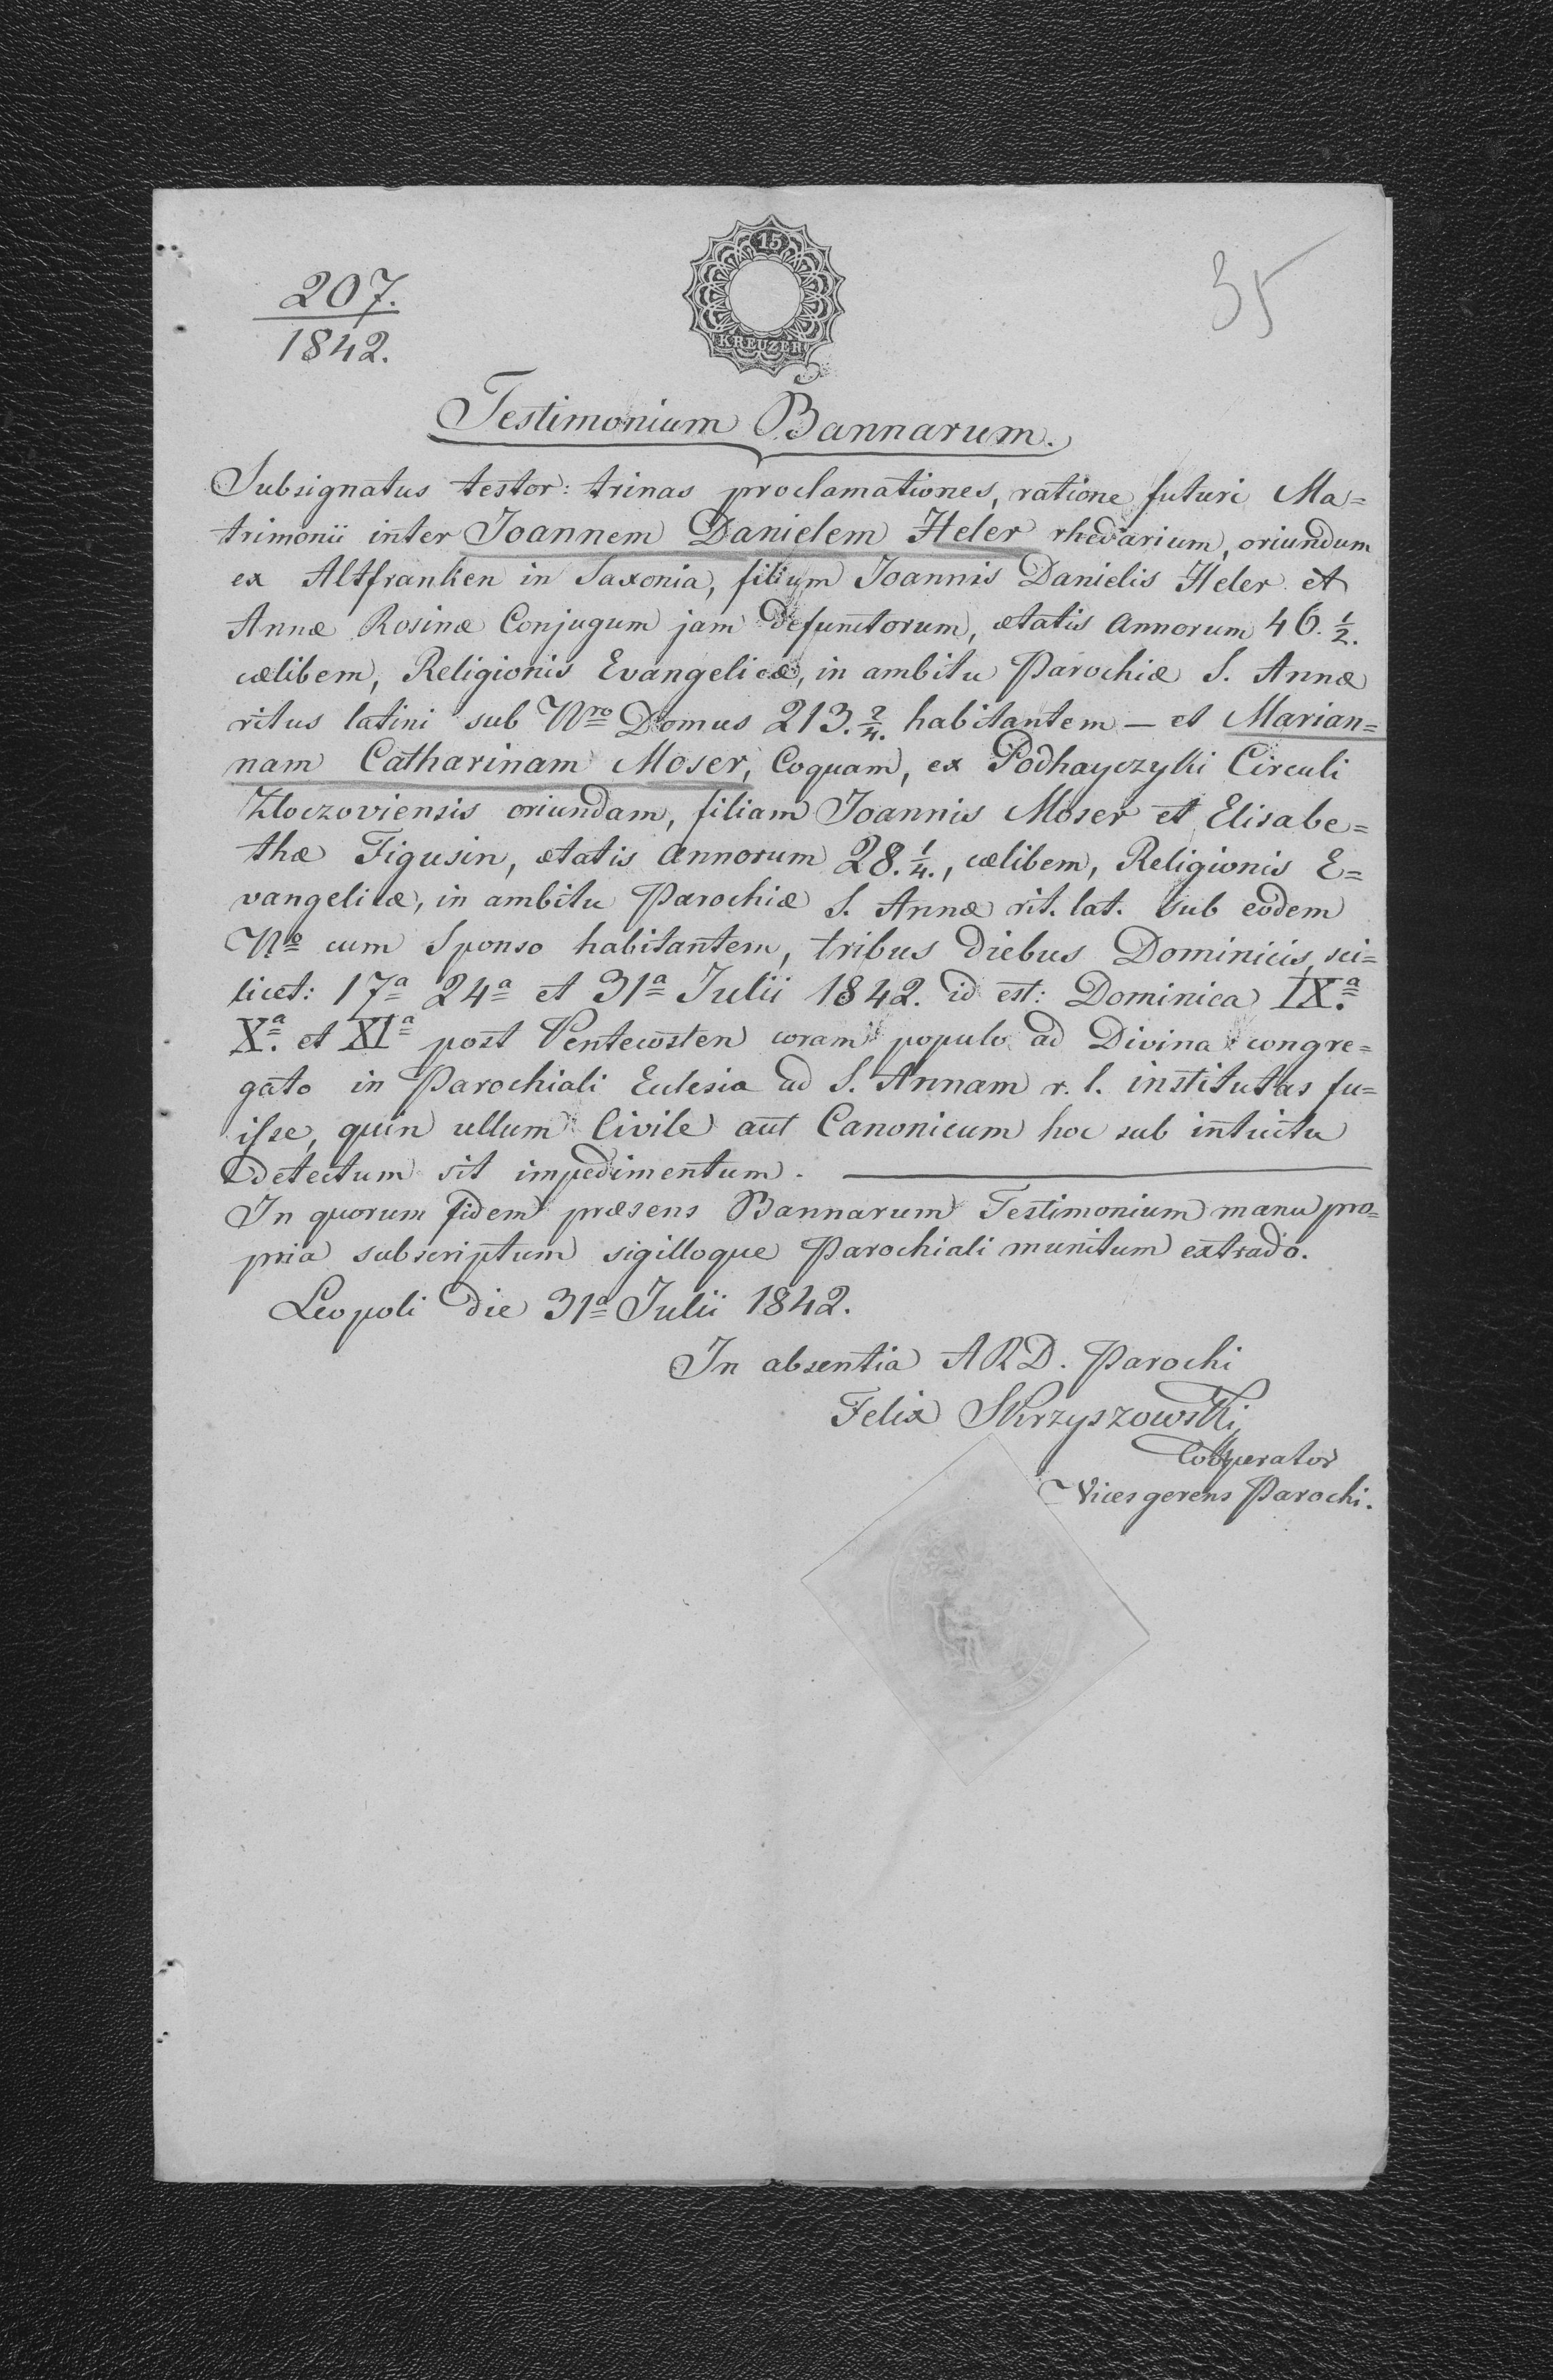 15
KREUZER
207.
1842.
35
Testimonium Bannarum.
Subsignatus testor: trinas proclamationes, ratione futuri Ma=
trimonii inter Joannem Danielem Heler rhedarium, oriundum
ex Altfranken in Saxonia, filium Joannis Danielis Heler et
Annæ Rosinæ Conjugum jam defunctorum, ætatis annorum 46. 1/2.
cælibem, Religionis Evangelicæ, in ambitu Parochiæ S. Annæ
ritus latini sub Nro Domus 213. 2/4. habitantem — et Marian=
nam Catharinam Moser, Coquam, ex Podhayczyki Circuli
Zloczoviensis oriundam, filiam Joannis Moser et Elisabe=
thæ Figusin, ætatis annorum 28. 1/4., cælibem, Religionis E=
vangelicæ, in ambitu Parochiæ S. Annæ rit. lat. sub eodem
Nro cum Sponso habitantem, tribus diebus Dominicis, sci=
licet: 17a 24a et 31a Julii 1842. id est: Dominica IX.a
X.a et XIa post Pentecosten coram populo ad Divina congre=
gato in Parochiali Eclesia ad S. Annam r. l. institutas fu=
iſse, quin ullum Civile aut Canonicum hoc sub intuitu
detectum sit impedimentum.
In quorum fidem præsens Bannarum Testimonium manu pro=
pria subscriptum sigilloque Parochiali munitum extrado.
Leopoli die 31a Julii 1842.
In absentia ARD. Parochi
Felix Skrzyszowski
Cooperator
Vices gerens Parochi.